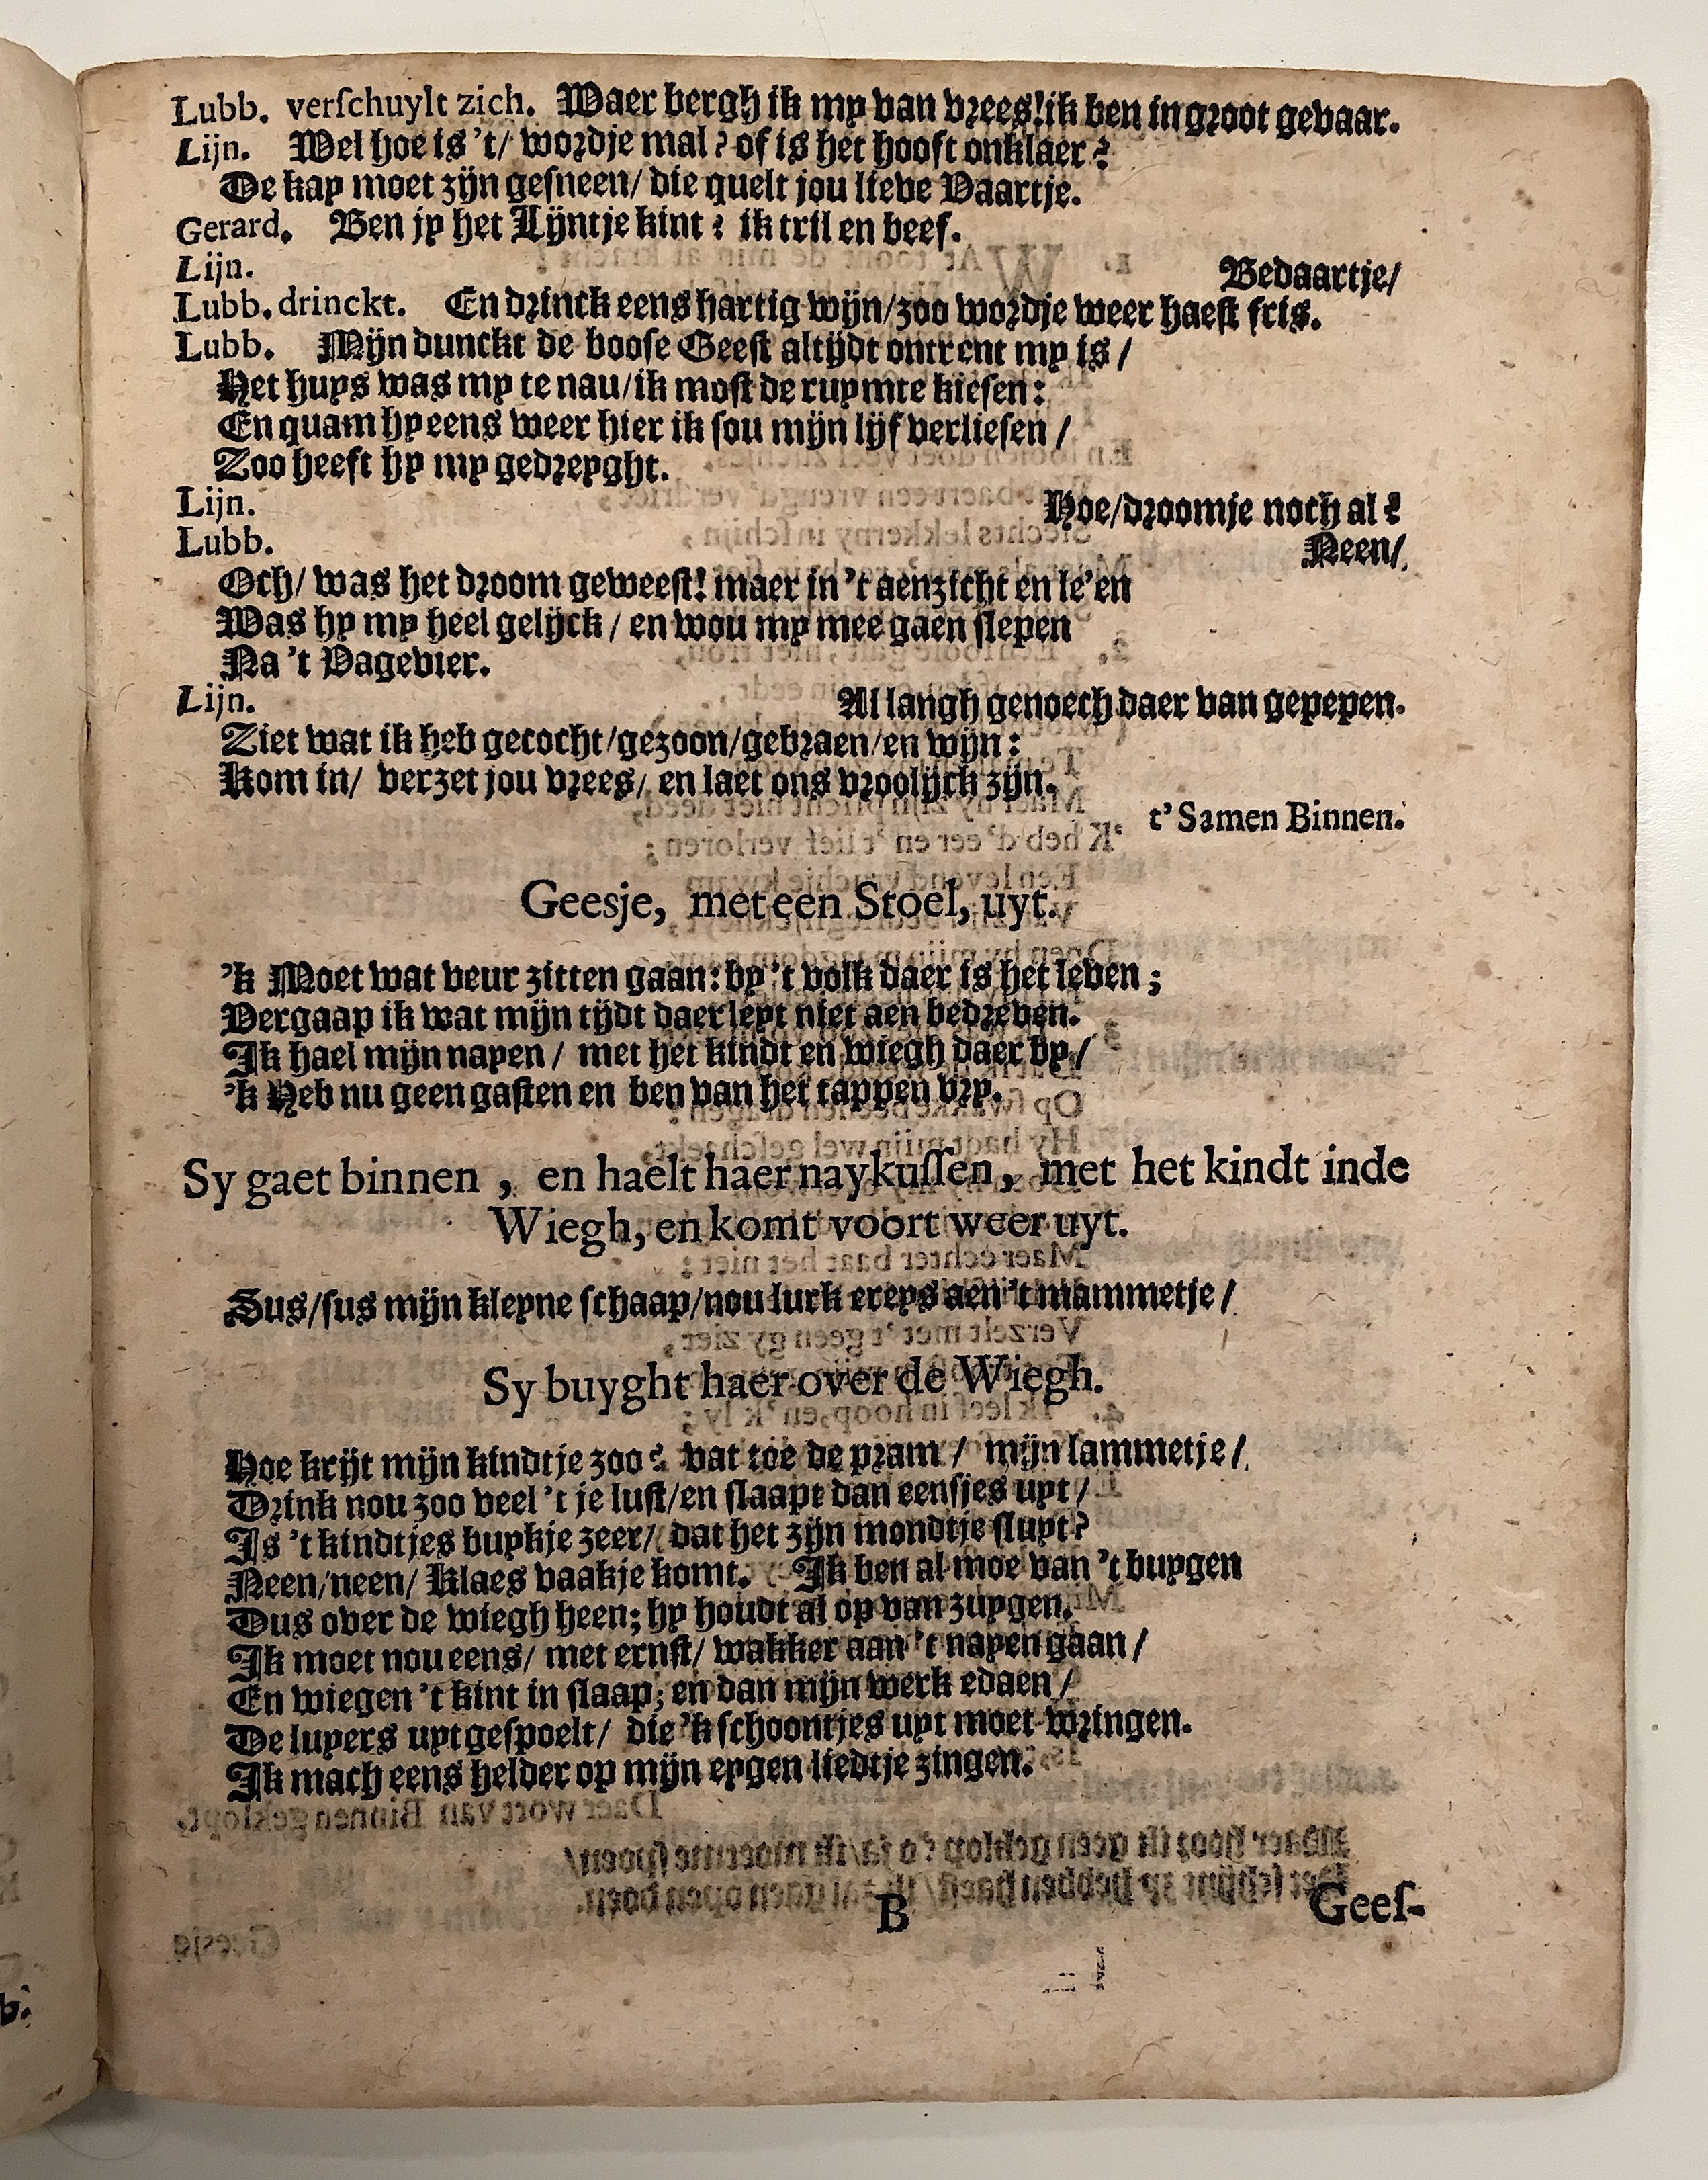 Lubb. verſchuylt zich. Waer bergh ik my van vrees! ik ben in groot gevaar.
Lijn. Wel hoe is 't/ wordje mal? of is het hooft onklaer?
De kap moet zijn geſneen/ die quelt jou lieve Vaartje.
Gerard. Ben jy het Lijntje kint? ik tril en beef.
Lijn. Bedaartje/
Lubb. drinckt. En drinck eens hartig wijn/zoo wordje weer haeſt fris.
Lubb. Mijn dunckt de booſe Geeſt altijdt ontrent my is /
Het huys was my te nau/ik moſt de ruymte kieſen:
En quam hy eens weer hier ik ſou mijn lijf verlieſen /
Zoo heeft hy my gedreyght.
Lijn. Hoe/droomje noch al?
Lubb. Neen/
Och/ was het droom geweeſt! maer in 't aenzicht en le'en
Was hy my heel gelijck / en wou my mee gaen ſlepen
Na 't Vagevier.
Lijn. Al langh genoech daer van gepepen.
Ziet wat ik heb gecocht/gezoon/gebraen/en wijn:
Kom in/ verzet jou vrees/ en laet ons vroolijck zijn.
t'Samen Binnen.
Geesje, met een Stoel, uyt.
'k Moet wat veur zitten gaan: by 't volk daer is het leven;
Vergaap ik wat mijn tijdt daer leyt niet aen bedreven.
Ik hael mijn nayen / met het kindt en wiegh daer by /
'k Heb nu geen gaſten en ben van het tappen vry.
Sy gaet binnen, en haelt haer naykuſſen, met het kindt inde
Wiegh, en komt voort weer uyt.
Sus/ſus mijn kleyne ſchaap/nou lurk ereys aen 't mammetje /
Sy buyght haer over de Wiegh.
Hoe krijt mijn kindtje zoo? vat toe de pram / mijn lammetje /
Drink nou zoo veel 't je luſt/en ſlaapt dan eenſjes uyt /
Is 't kindtjes buykje zeer/ dat het zijn mondtje ſluyt?
Neen/neen/ Klaes vaakje komt. Ik ben al moe van 't buygen
Dus over de wiegh heen; hy houdt al op van zuygen.
Ik moet nou eens/ met ernſt/ wakker aan 't nayen gaan /
En wiegen 't kint in ſlaap; en dan mijn werk edaen /
De luyers uytgeſpoelt/ die 'k ſchoontjes uyt moet wringen.
Ik mach eens helder op mijn eygen liedtje zingen.
B Geeſ-